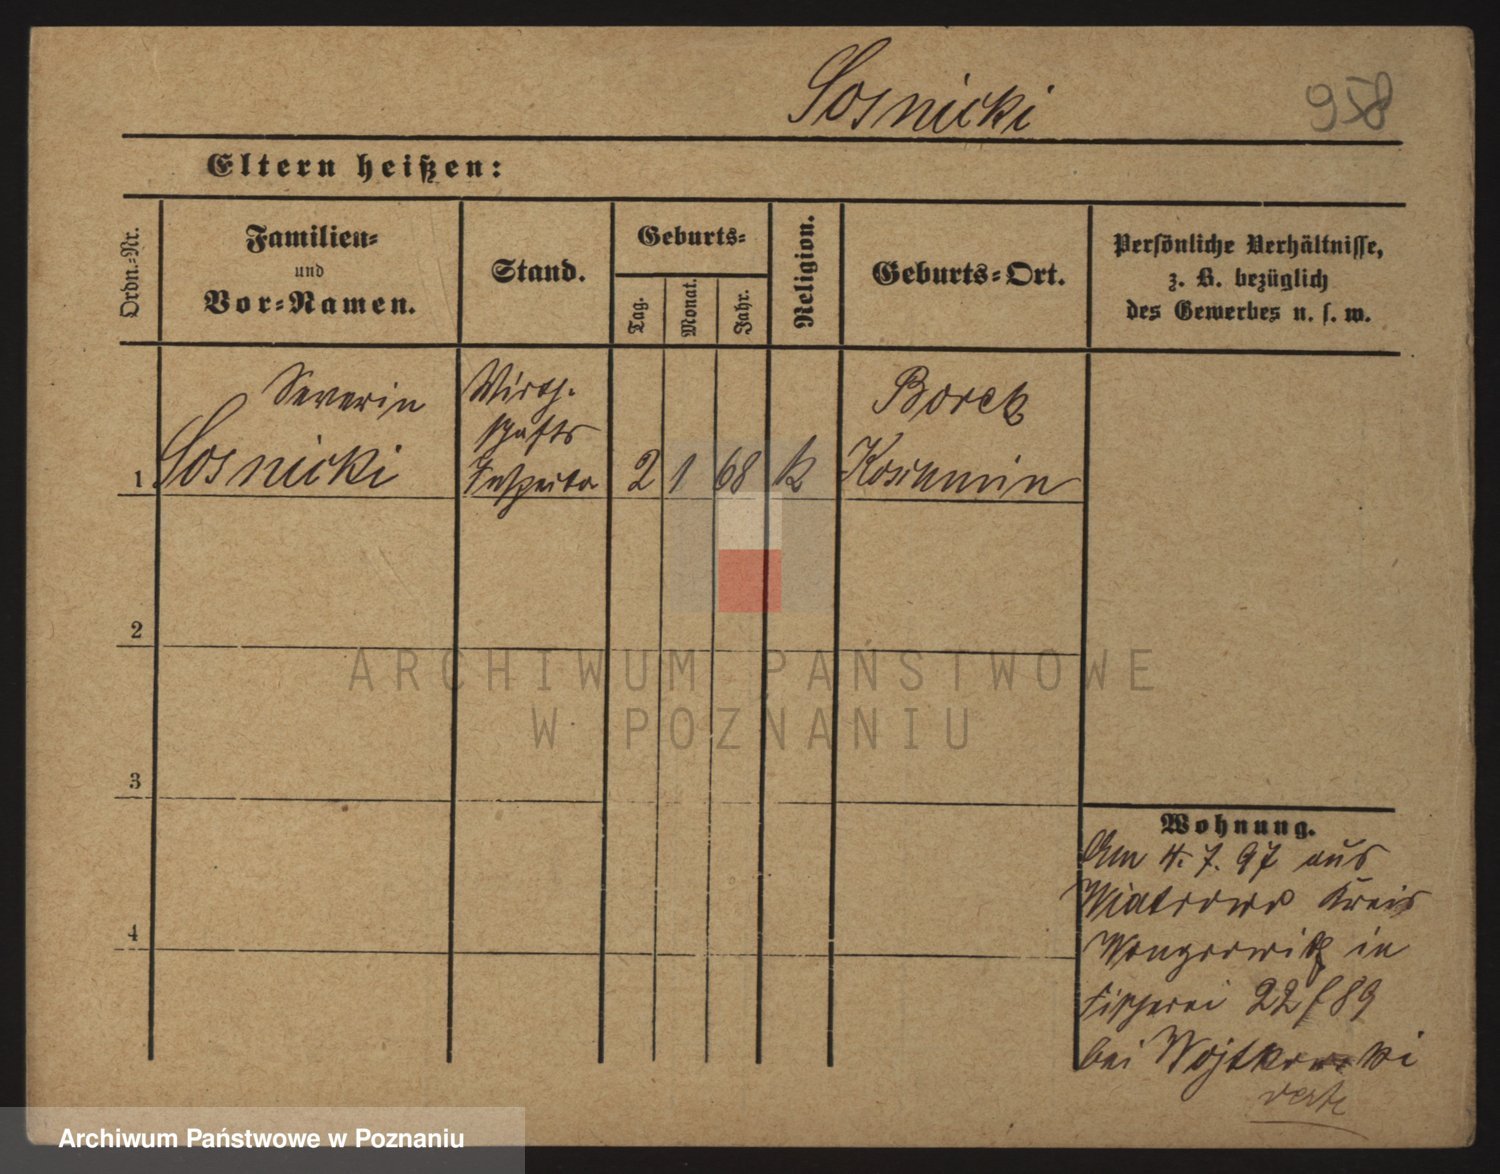 Sosnicki
958
Eltern heißen:
Ordn.-Nr.
Familien-
und
Vor-Namen.
Stand.
Geburts-
Tag.
Monat.
Jahr.
Religion.
Geburts-Ort.
Persönliche Verhältnisse,
z. B. bezüglich
des Gewerbes u. s. w.
1
Severin
Sosnicki
Wirth-
schafts
Inspector
2
1
68
k
Borek
Koschmin
2
3
4
Wohnung.
Am 4. 7. 97 aus
Wiatrowo Kreis
Wongrowitz in
Fischerei 22/89
bei Wojtkowski
verte
ARCHIWUM PAŃSTWOWE
W POZNANIU
Archiwum Państwowe w Poznaniu